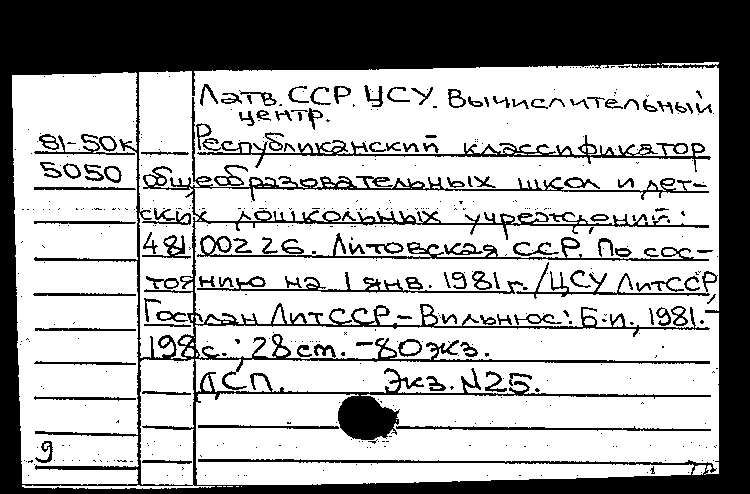 Латв. ССР. ЦСУ. Вычислительный
центр.
81-50к Республиканский классификатор
5050 общеобразовательных школ и дет-
ских дошкольных учреждений:
48100226. Литовская ССР. По сос-
тоянию на 1 янв. 1981г. /ЦСУ ЛитССР,
Госплан ЛитССР.- Вильнюс: Б.и., 1981.-
198с.; 28см. -80экз.
ДСП. Экз.N25.
9